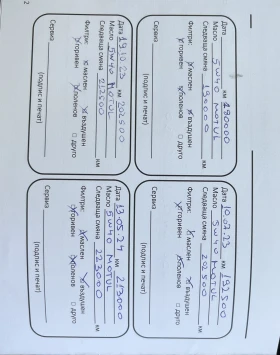 Дата км 180000
Масло 5W40 MOTUL
Следваща смяна 190000 км
Филтри: маслен въздушен
горивен поленов друго
Сервиз
(подпис и печат)
Дата 10.07.23 км 192500
Масло 5W40 MOTUL
Следваща смяна 202500 км
Филтри: маслен въздушен
горивен поленов друго
Сервиз
(подпис и печат)
Дата 19.10.23 км 202500
Масло 5W40 MOTUL
Следваща смяна 212000 км
Филтри: маслен въздушен
горивен поленов друго
Сервиз
(подпис и печат)
Дата 13.05.24 км 213000
Масло 5W40 MOTUL
Следваща смяна 223000 км
Филтри: маслен въздушен
горивен поленов друго
Сервиз
(подпис и печат)
2